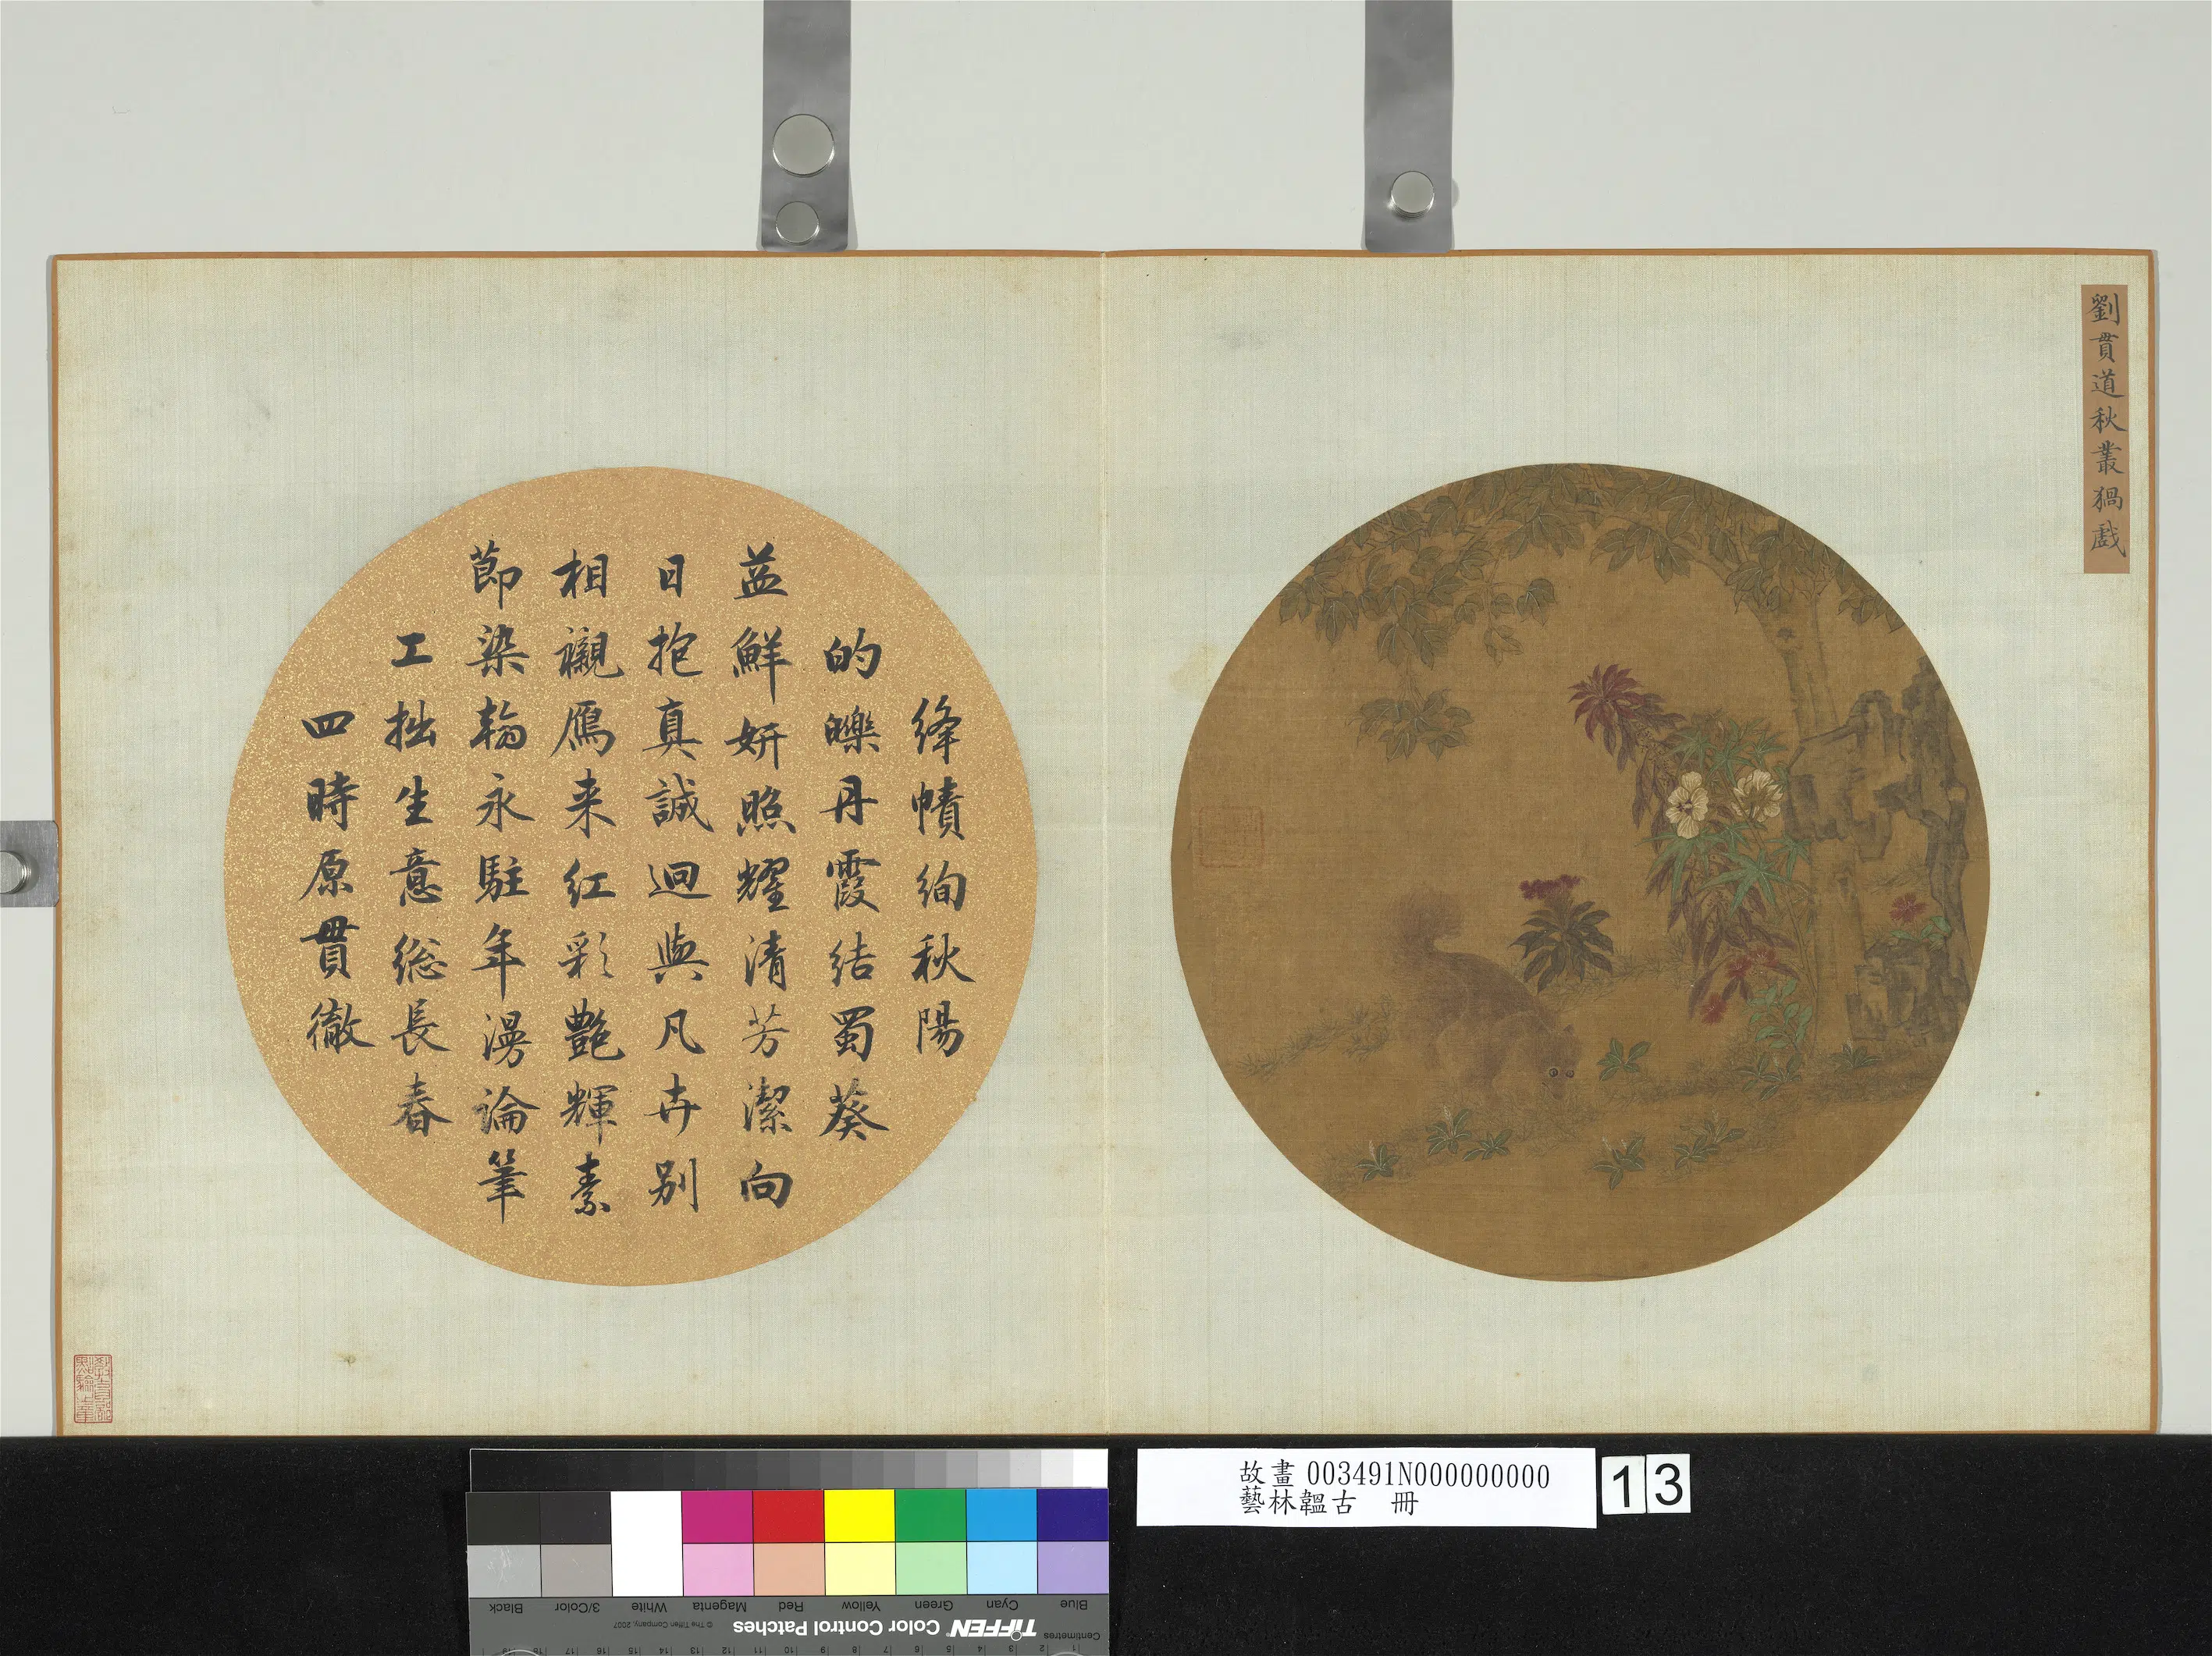 劉貫道秋叢猧戲
絳幘絢秋陽
的皪丹霞結蜀葵
益鮮妍照耀清芳潔向
日抱真誠迥與凡卉别
相襯鴈来紅彩艷輝素
節染翰永駐年漫論筆
工拙生意総長春
四時原貫徹
故畫 003491N000000000
藝林韞古 冊
13
Blue
Cyan
Green
Yellow
Red
Magenta
White
3/Color
Black
Centimetres
TIFFEN Color Control Patches
© The Tiffen Company, 2007